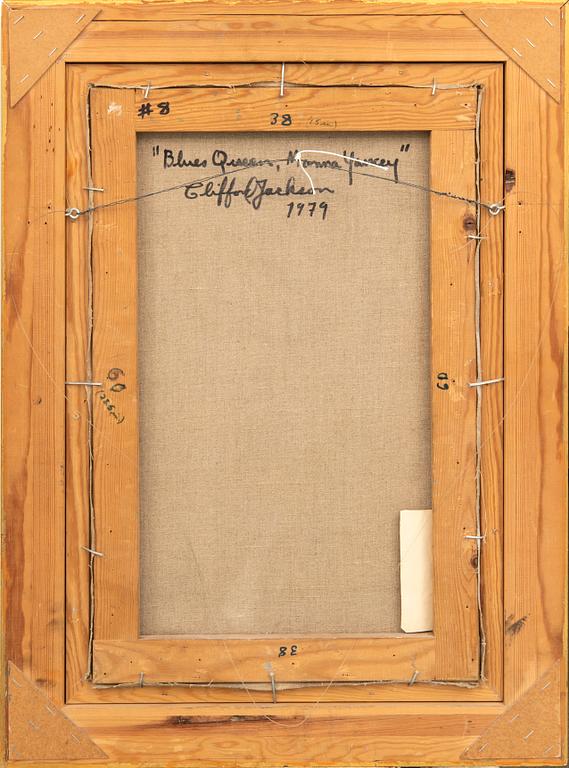 #8
38 (15in)
"Blues Queen, Mama Yancey"
Clifford Jackson
1979
60
60
38